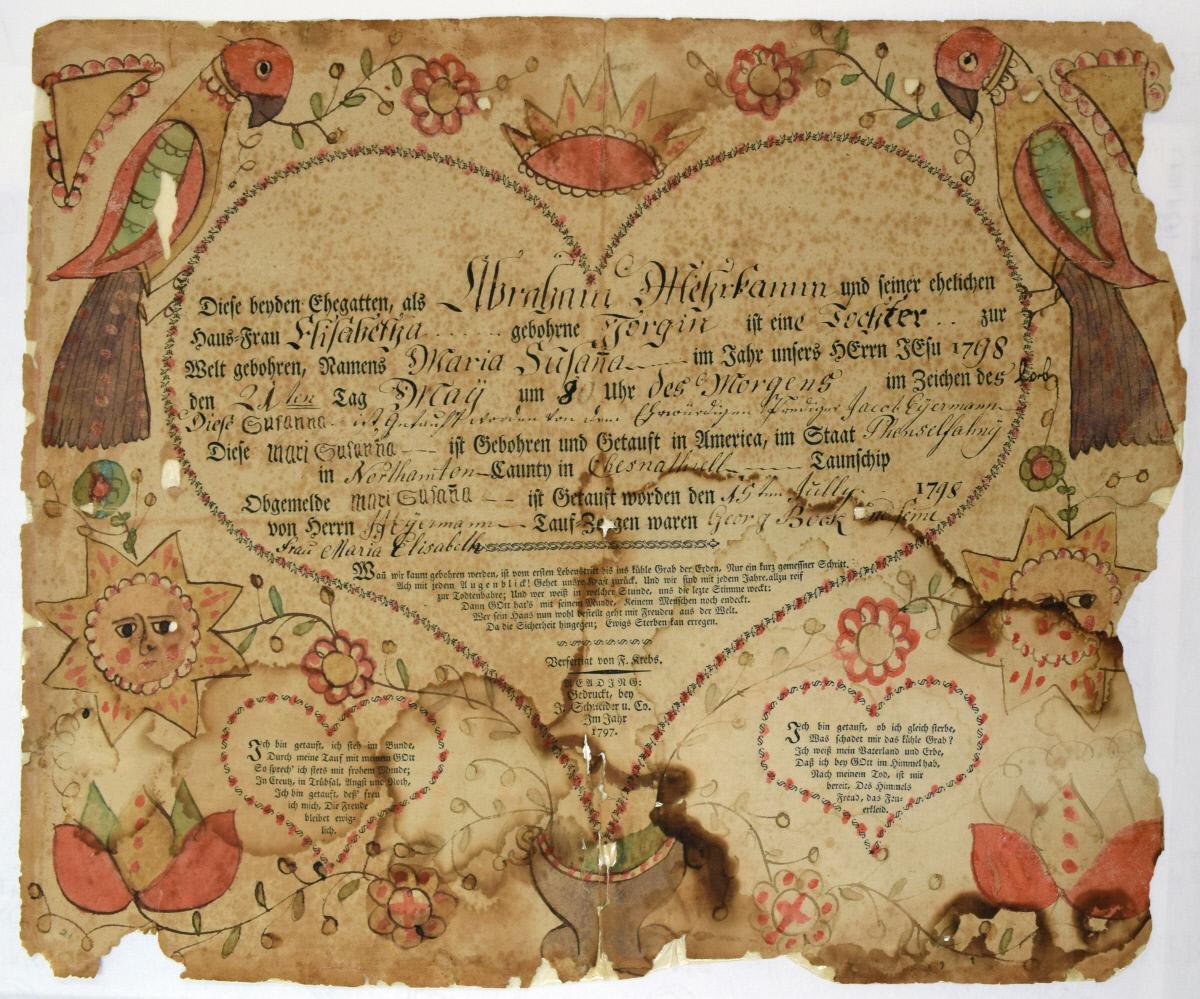 Diese beyden Ehegatten, als Abraham Mehrkamm und seiner ehelichen
Haus-Frau Elisabetha gebohrne Jorgin ist eine Tochter zur
Welt gebohren, Namens Maria Susaña im Jahr unsers HErrn JEsu 1798
den 21ten Tag Maÿ um 8 Uhr des Morgens im Zeichen des
Diese Susanna ist getauft worden von dem Ehrwürdigen Prediger Jacob Eyermann
Diese Mari Susanna ist Gebohren und Getauft in America, im Staat
in Northamton Caunty in Chesnathill Taunschip
Obgemelde Mari Susaña ist Getauft worden den 15ten Jully 1798
von Herrn Eyermann Tauf-Zeugen waren Georg Bock und seine
frau Maria Elisabeth
Wañ wir kaum gebohren werden, ist vom ersten Lebenstritt bis ins kühle Grab der Erden, Nur ein kurz gemeßner Schritt.
Ach mit jedem Augenblick! Gehet unsre Kraft zurück. Und wir sind mit jedem Jahre, allzu reif
zur Todtenbahre; Und wer weiß in welcher Stunde, uns die lezte Stimme weckt:
Dann GOtt hat's mit seinem Munde, Keinem Menschen noch endeckt.
Wer sein Haus nun wohl bestellt geht mit Freuden aus der Welt.
Da die Sicherheit hingegen; Ewigs Sterben kan erregen.
Verfertigt von F. Krebs.
READING:
Gedruckt, bey
J. Schneider u. Co.
Im Jahr
1797.
Ich bin getauft, ich steh im Bunde,
Durch meine Tauf mit meinem GOtt
So sprech' ich stets mit frohem Munde;
In Creutz, in Trübsal, Angst und Noth,
Ich bin getauft, deß' freu
ich mich, Die Freude
bleibet ewig-
lich.
Ich bin getauft, ob ich gleich sterbe,
Was schadet mir das kühle Grab?
Ich weiß mein Vaterland und Erbe,
Daß ich bey GOtt im Himmel hab,
Nach meinem Tod, ist mir
bereit, Des Himmels
Freud, das Feu-
erkleid.